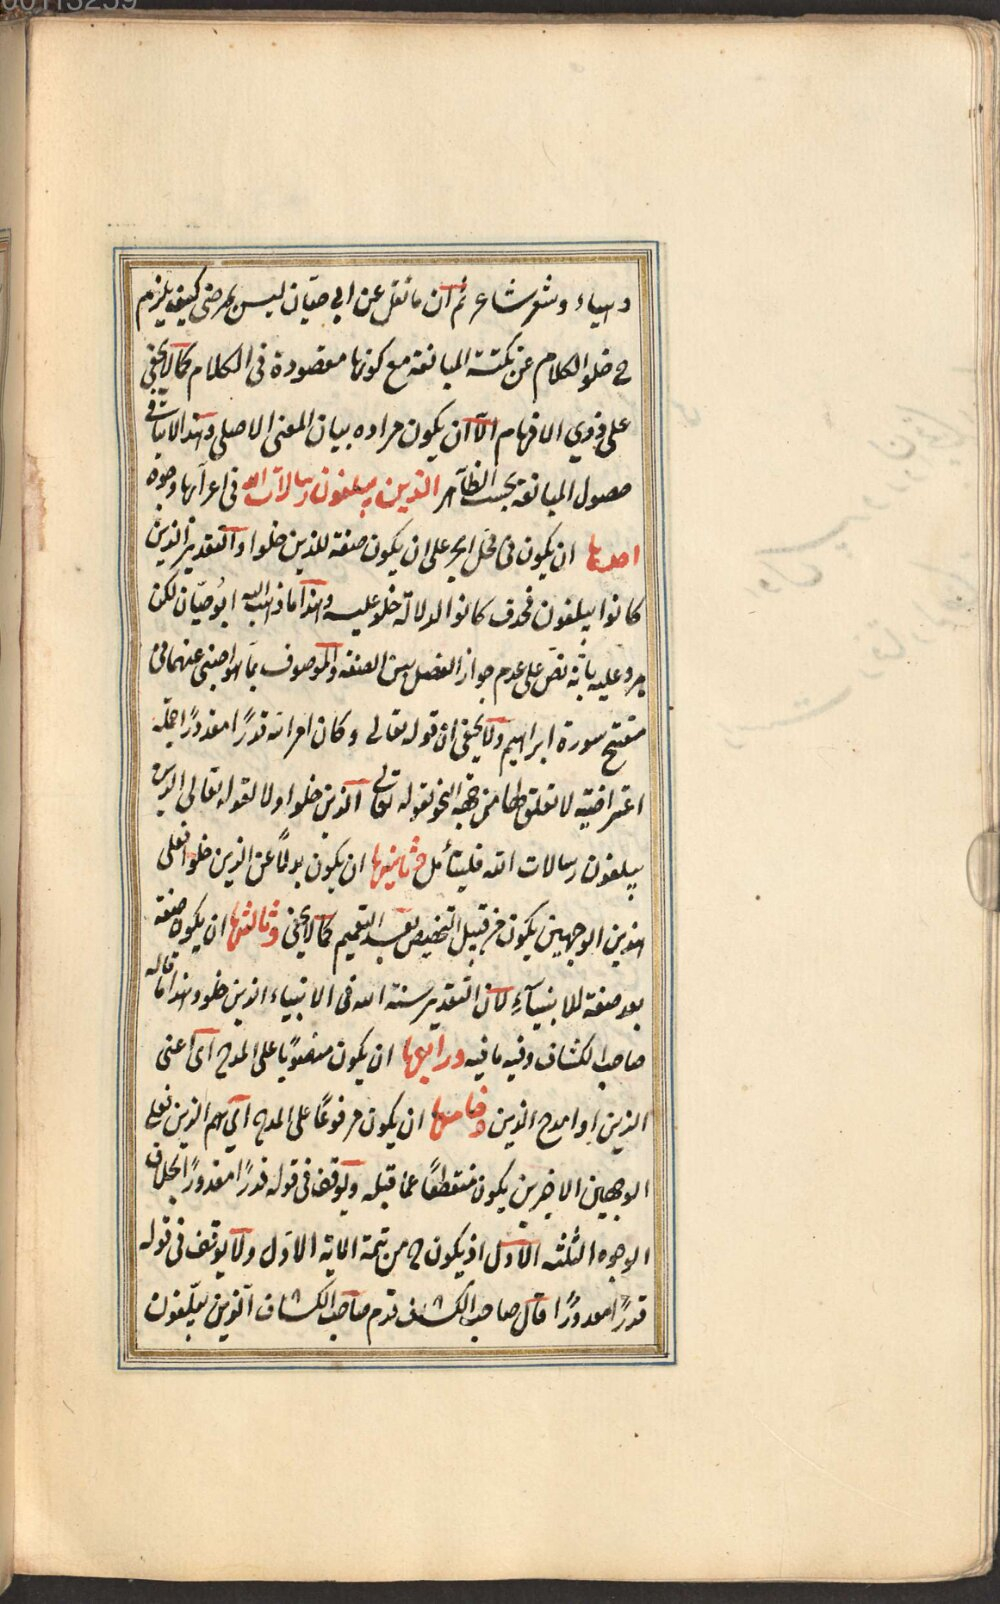 00113259
دهياء وشعر شاعر ثم ان ما نقل عن ابي حيّان ليس بمرضى كيف يلزم
ح خلو الكلام عن نكتة المبالغة مع كونها مقصودة فى الكلام كما لا يخفى
على ذوي الافهام الا ان يكون مراده بيان المعنى الاصلى وهذا لا ينافى
حصول المبالغة بحسب الظاهر الذين يبلغون رسالات الله فى اعرابها وجوه
احدها ان يكون فى محل الجر على ان يكون صفة للذين خلوا والتقدير الذين
كانوا يبلغون فحذف كانوا لدلالة خلو عليه وهذا ما ذهب اليه ابو حيّان لكن
يرد عليه بانه نصّ على عدم جواز الفصل بين الصفة والموصوف بما هو اجنبى عنهما فى
مفتتح سورة ابراهيم ولا يخفى ان قوله تعالى وكان امر الله قدرًا مقدورًا جملة
اعتراضية لا تعلق لها من جهة النحو بقوله تعالى الذين خلوا ولا لقوله تعالى الذين
يبلغون رسالات الله فليتأمل وثانيها ان يكون بدلًا عن الذين خلوا فعلى
هذين الوجهين يكون من قبيل التخصيص بعد التعميم كما لا يخفى وثالثها ان يكون صفة
بعد صفة للانبياء لان التقدير سنة الله فى الانبياء الذين خلو وهذا ما قاله
صاحب الكشاف وفيه ما فيه ورابعها ان يكون منصوبًا على المدح اى اعنى
الذين او امدح الذين وخامسها ان يكون مرفوعًا على المدح اى هم الذين فعلى
الوجهين الاخيرين يكون منقطعًا عما قبله ويوقف فى قوله قدرًا مقدورًا بخلاف
الوجوه الثلثة الاول اذ يكون ح من تتمة الاية الاول ولا يوقف فى قوله
قدرًا مقدورًا قال صاحب الكشاف قدم صاحب الكشاف الذين يبلّغون